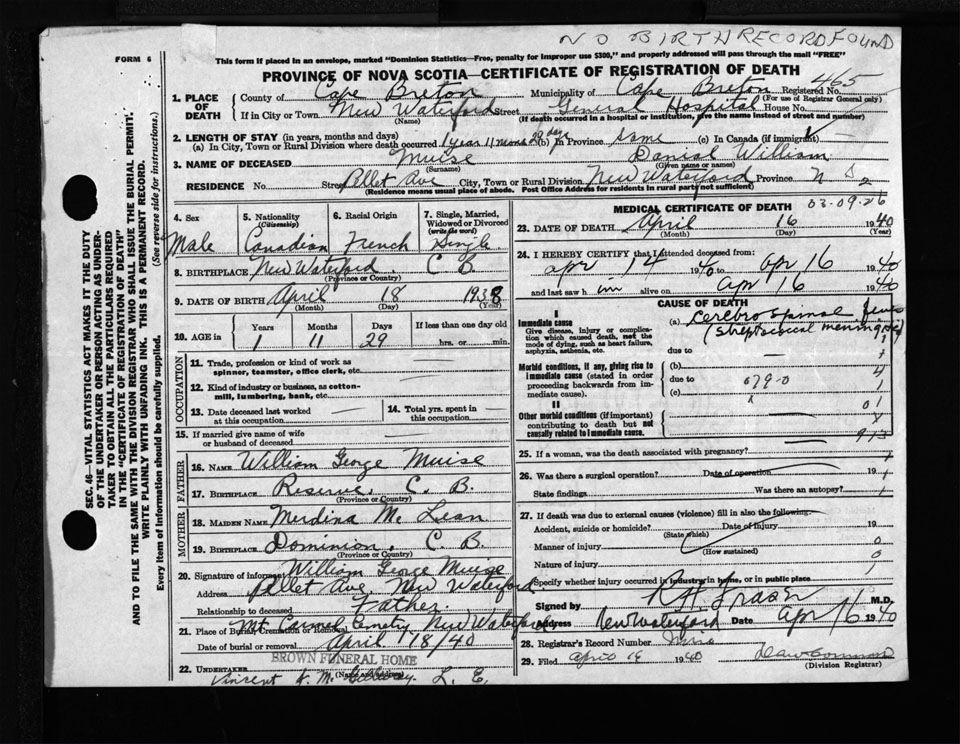 NO BIRTH RECORD FOUND
FORM 6
This form if placed in an envelope, marked "Dominion Statistics—Free, penalty for improper use $300," and properly addressed will pass through the mail "FREE"
PROVINCE OF NOVA SCOTIA—CERTIFICATE OF REGISTRATION OF DEATH
465
1. PLACE OF DEATH
County of Cape Breton Municipality of Cape Breton Registered No.
(For use of Registrar General only)
If in City or Town New Waterford Street General Hospital House No.
(Name) (If death occurred in a hospital or institution, give the name instead of street and number)
2. LENGTH OF STAY (in years, months and days)
(a) In City, Town or Rural Division where death occurred 1 year 11 months 29 days (b) In Province same (c) In Canada (if immigrant)
3. NAME OF DECEASED Muise Daniel William
(Surname) (Given name or names)
RESIDENCE No. Street Pellet Ave City, Town or Rural Division New Waterford Province N S
(Residence means usual place of abode. Post Office Address for residents in rural parts not sufficient)
2
03-09-26
4. Sex
Male
5. Nationality (Citizenship)
Canadian
6. Racial Origin
French
7. Single, Married, Widowed or Divorced (write the word)
Single
8. BIRTHPLACE New Waterford C B
(Province or Country)
9. DATE OF BIRTH April 18 1938
(Month) (Day) (Year)
10. AGE in Years Months Days If less than one day old
1 11 29 hrs. or min.
OCCUPATION
11. Trade, profession or kind of work as spinner, teamster, office clerk, etc.
12. Kind of industry or business, as cotton-mill, lumbering, bank, etc.
13. Date deceased last worked at this occupation
14. Total yrs. spent in this occupation
15. If married give name of wife or husband of deceased
FATHER
16. NAME William George Muise
17. BIRTHPLACE Reserve, C. B.
(Province or Country)
MOTHER
18. MAIDEN NAME
19. BIRTHPLACE Dominion, C. B.
(Province or Country)
20. Signature of informant William George Muise
Address Pellet Ave New Waterford
Relationship to deceased Father.
21. Place of Burial, Cremation or Removal Mt Carmel Cemetry New Waterford
Date of burial or removal April 18/40
BROWN FUNERAL HOME
22. UNDERTAKER
(Name and address)
Vincent
MEDICAL CERTIFICATE OF DEATH
23. DATE OF DEATH April 16 1940
(Month) (Day) (Year)
24. I HEREBY CERTIFY that I attended deceased from:
apr 14 1940 to apr 16 1940
and last saw h im alive on apr 16 1940
CAUSE OF DEATH
I
Immediate cause
Give disease, injury or complication which caused death, not the mode of dying, such as heart failure, asphyxia, asthenia, etc.
(a) Cerebro spinal
(streptococcal meningitis)
due to
Morbid conditions, if any, giving rise to immediate cause (stated in order proceeding backwards from immediate cause).
(b)
due to 079-0
(c)
II
Other morbid conditions (if important) contributing to death but not causally related to immediate cause.
25. If a woman, was the death associated with pregnancy?
26. Was there a surgical operation? Date of operation 19
State findings Was there an autopsy?
27. If death was due to external causes (violence) fill in also the following:
Accident, suicide or homicide? Date of Injury 19
(State which)
Manner of injury
(How sustained)
Nature of injury
Specify whether injury occurred in industry, in home, or in public place
Signed by R H Fraser M.D.
Address New Waterford Date Apr 16 1940
28. Registrar's Record Number
29. Filed April 19 1940
(Division Registrar)
SEC. 46—VITAL STATISTICS ACT MAKES IT THE DUTY OF THE UNDERTAKER OR PERSON ACTING AS UNDERTAKER TO OBTAIN ALL THE PARTICULARS REQUIRED IN THE "CERTIFICATE OF REGISTRATION OF DEATH" AND TO FILE THE SAME WITH THE DIVISION REGISTRAR WHO SHALL ISSUE THE BURIAL PERMIT.
(See reverse side for instructions.)
WRITE PLAINLY WITH UNFADING INK. THIS IS A PERMANENT RECORD.
Every item of information should be carefully supplied.